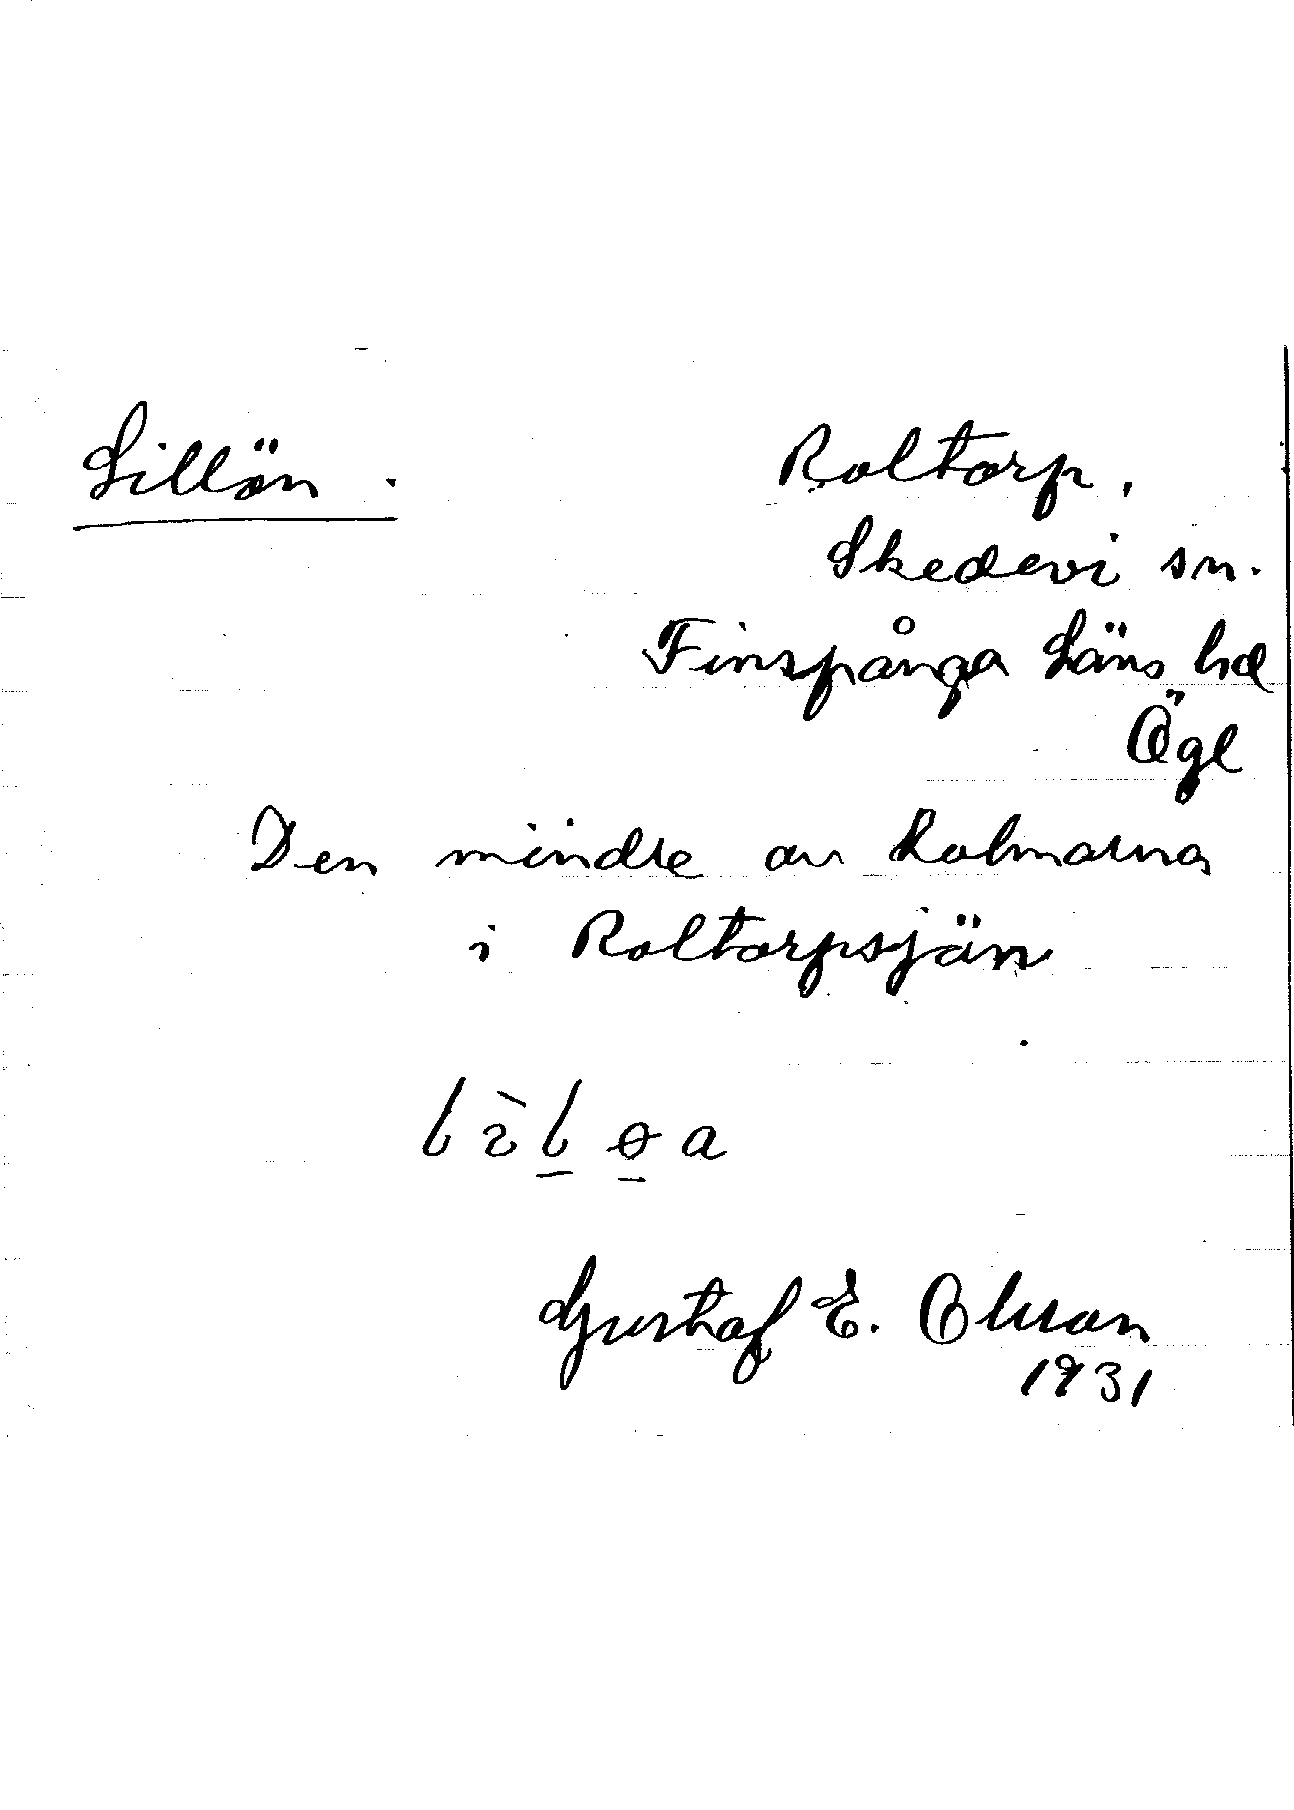 Lillön.
Roltorp,
Skedevi sn.
Finspånga Läns hd
Ögl
Den mindre av holmarna
i Roltorpsjön
Gustaf E. Olsson
1931